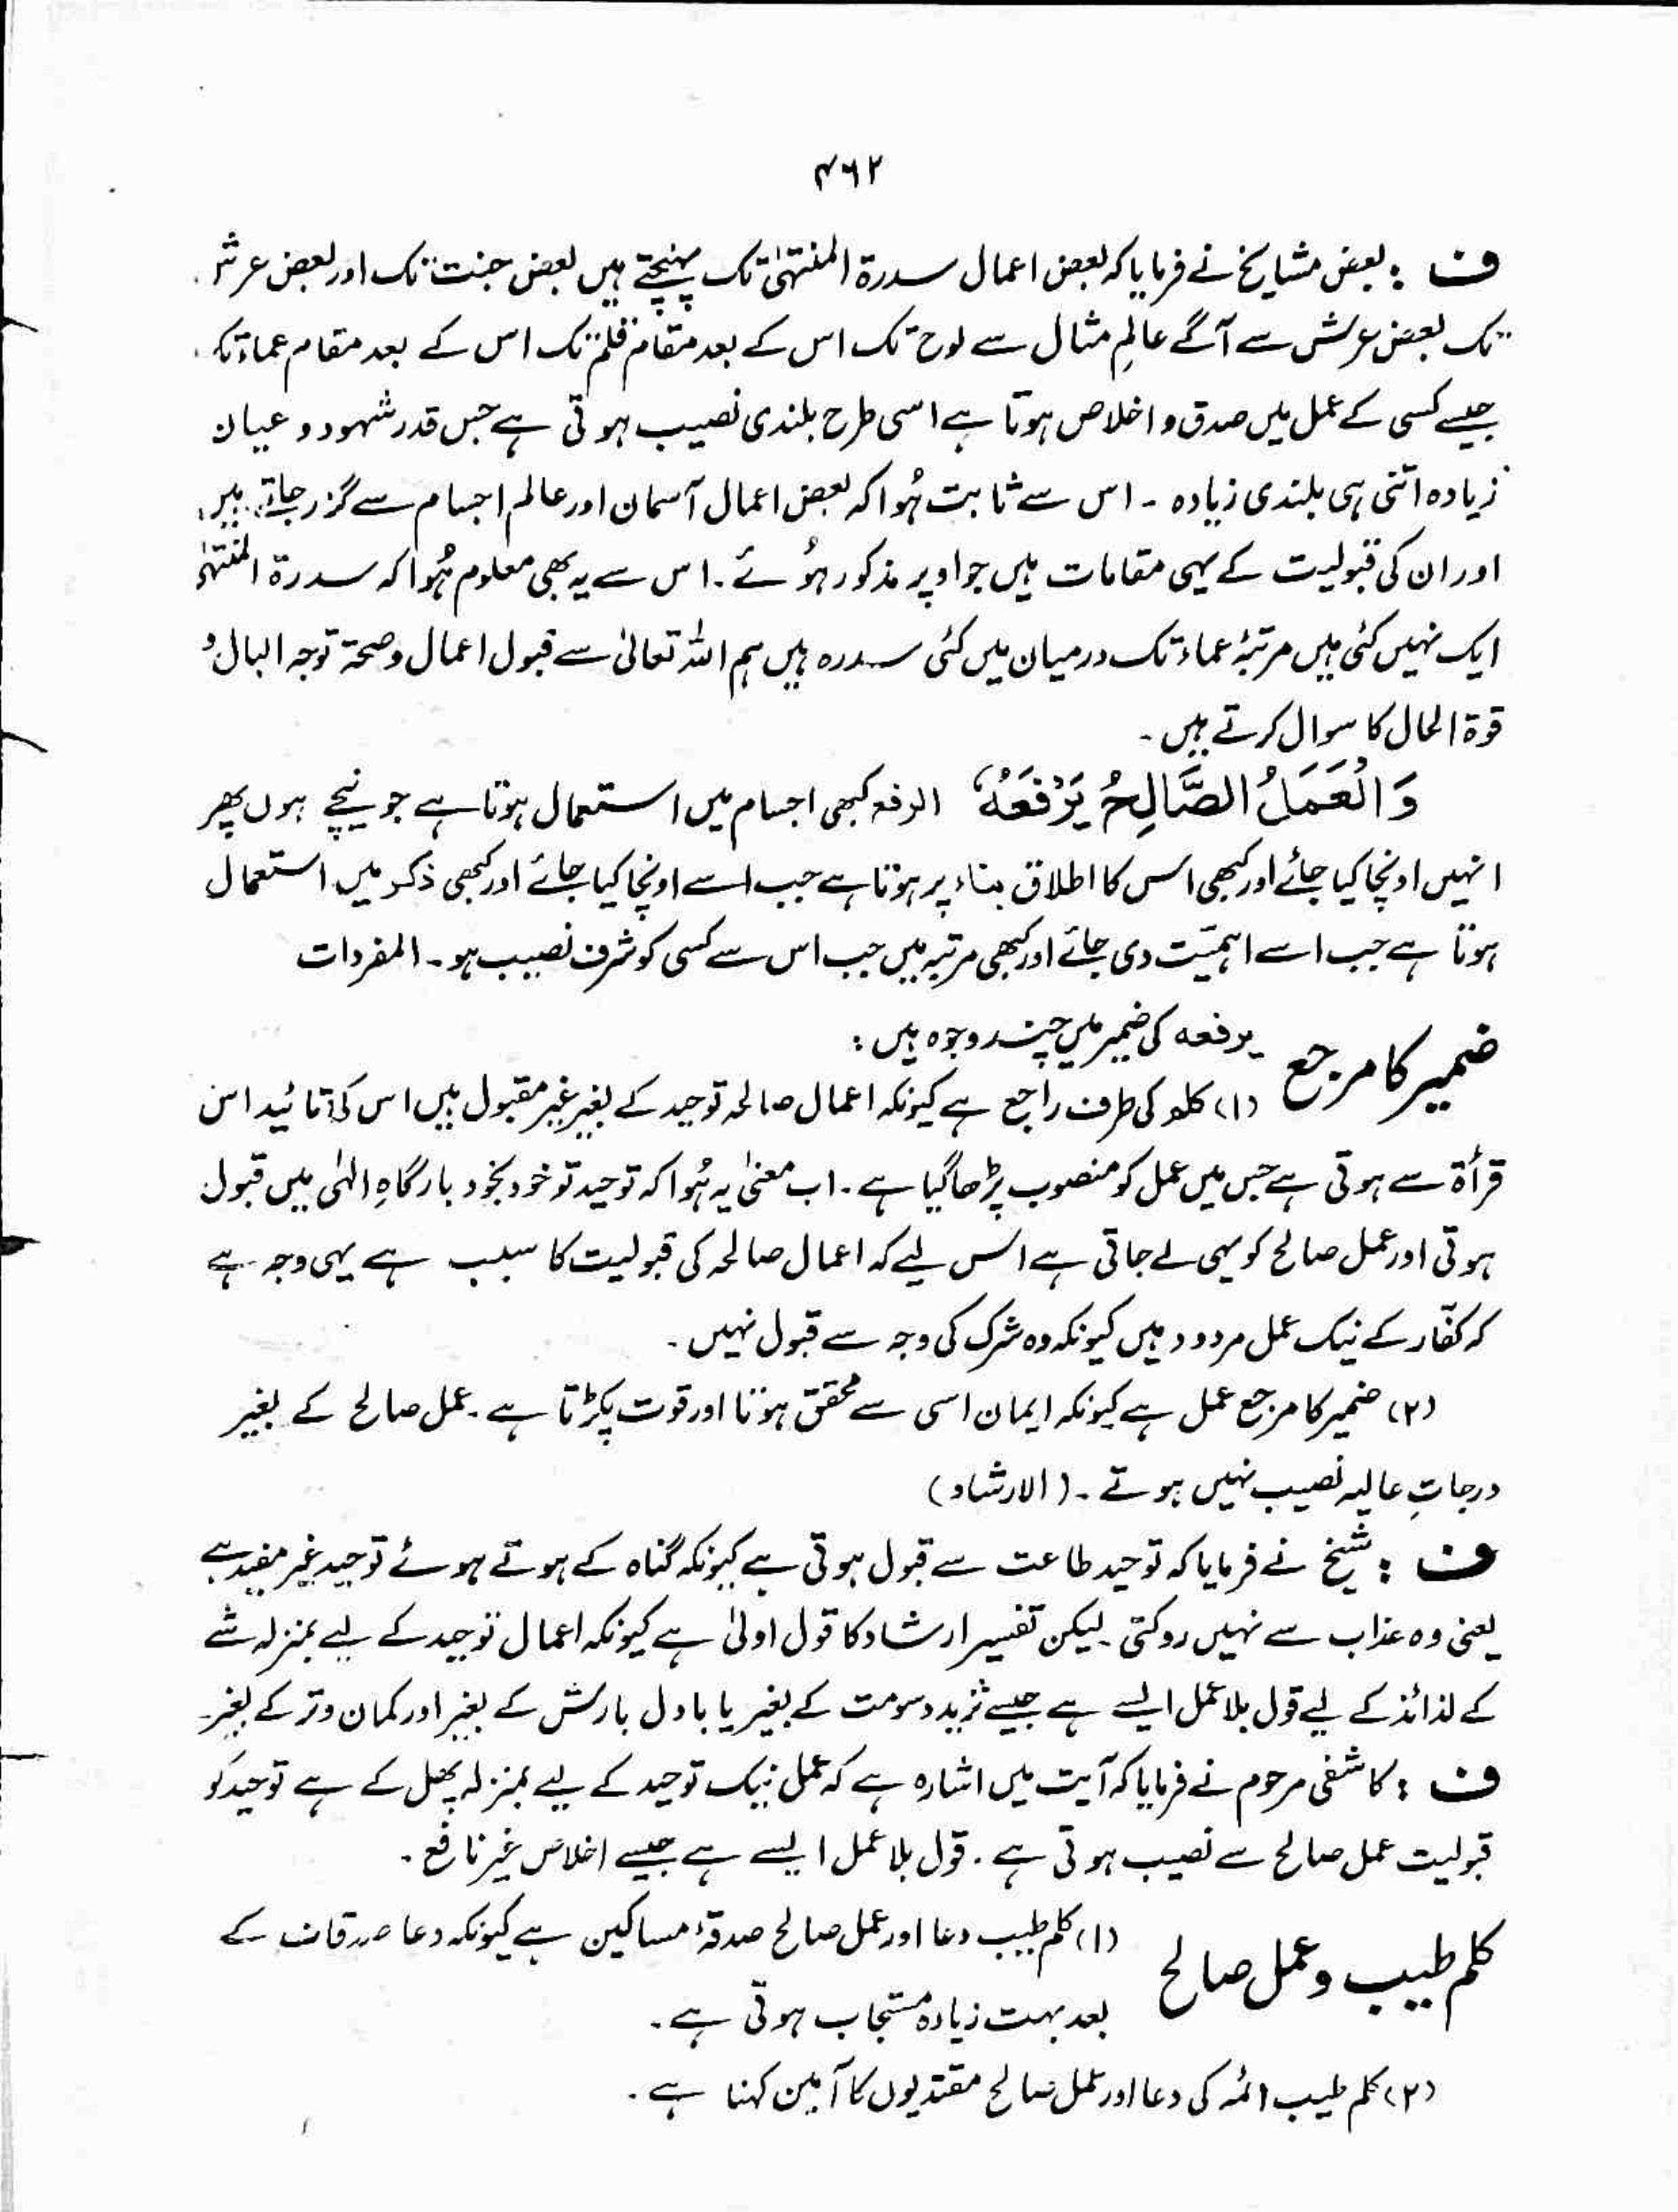 ۴۶۲
ف : بعض مشایخ نے فرمایا کہ بعض اعمال سدرۃ المنتہیٰ تک پہنچتے ہیں بعض جنت تک اور بعض عرش
تک بعض عرش سے آگے عالمِ مثال سے لوح تک اس کے بعد مقام قلم تک اس کے بعد مقام عماء تک
جیسے کسی کے عمل میں صدق و اخلاص ہوتا ہے اسی طرح بلندی نصیب ہوتی ہے جس قدر شہود و عیان
زیادہ اتنی ہی بلندی زیادہ ۔ اس سے ثابت ہُوا کہ بعض اعمال آسمان اور عالم اجسام سے گزر جاتے ہیں
اور ان کی قبولیت کے یہی مقامات ہیں جو اوپر مذکور ہُوئے ۔ اس سے یہ بھی معلوم ہُوا کہ سدرۃ المنتہیٰ
ایک نہیں کئی ہیں مرتبۂ عماء تک درمیان میں کئی سدرہ ہیں ہم اللہ تعالیٰ سے قبول اعمال و صحۃ توجہ البال و
قوۃ الحال کا سوال کرتے ہیں ۔
وَالْعَمَلُ الصَّالِحُ يَرْفَعُهٗ الرفع کبھی اجسام میں استعمال ہوتا ہے جو نیچے ہوں پھر
انہیں اونچا کیا جائے اور کبھی اس کا اطلاق بناء پر ہوتا ہے جب اسے اونچا کیا جائے اور کبھی ذکر میں استعمال
ہوتا ہے جب اسے اہمیّت دی جائے اور کبھی مرتبہ میں جب اس سے کسی کو شرف نصیب ہو ۔ المفردات
ضمیر کا مرجع یرفعہ کی ضمیر میں چند وجوہ ہیں :
(۱) کلم کی طرف راجع ہے کیونکہ اعمال صالحہ توحید کے بغیر غیر مقبول ہیں اس کی تائید اس
قرأۃ سے ہوتی ہے جس میں عمل کو منصوب پڑھا گیا ہے ۔ اب معنیٰ یہ ہُوا کہ توحید تو خود بخود بارگاہِ الٰہی میں قبول
ہوتی اور عمل صالح کو یہی لے جاتی ہے اس لیے کہ اعمال صالحہ کی قبولیت کا سبب ہے یہی وجہ ہے
کہ کفّار کے نیک عمل مردود ہیں کیونکہ وہ شرک کی وجہ سے قبول نہیں ۔
(۲) ضمیر کا مرجع عمل ہے کیونکہ ایمان اسی سے محقق ہوتا اور قوت پکڑتا ہے ۔ عمل صالح کے بغیر
درجاتِ عالیہ نصیب نہیں ہوتے ۔ (الارشاد)
ف : شیخ نے فرمایا کہ توحید طاعت سے قبول ہوتی ہے کیونکہ گناہ کے ہوتے ہوئے توحید غیر مفید ہے
یعنی وہ عذاب سے نہیں روکتی ۔ لیکن تفسیر ارشاد کا قول اولیٰ ہے کیونکہ اعمال توحید کے لیے بمنزلہ شے
کے لذائذ کے لیے قول بلا عمل ایسے ہے جیسے ثرید دسومت کے بغیر یا بادل بارش کے بغیر اور کمان وتر کے بغیر
ف : کاشفی مرحوم نے فرمایا کہ آیت میں اشارہ ہے کہ عمل نیک توحید کے لیے بمنزلہ پھل کے ہے توحید کو
قبولیت عمل صالح سے نصیب ہوتی ہے ۔ قول بلا عمل ایسے ہے جیسے اخلاص غیر نافع ۔
کلم طیب و عمل صالح (۱) کلم طیب دعا اور عمل صالح صدقۂ مساکین ہے کیونکہ دعا صدقات کے
بعد بہت زیادہ مستجاب ہوتی ہے ۔
(۲) کلم طیب ائمہ کی دعا اور عمل صالح مقتدیوں کا آمین کہنا ہے ۔